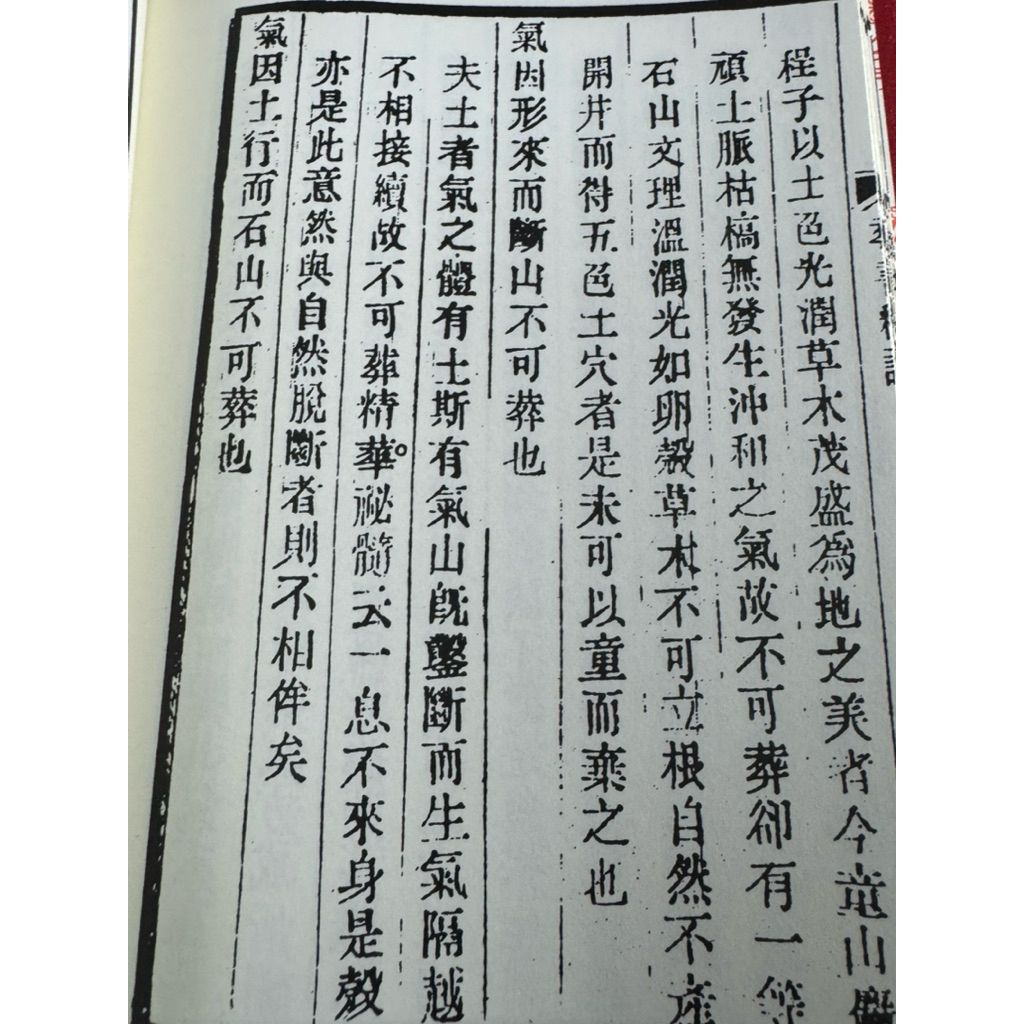 程子以土色光潤草木茂盛為地之美者今童山
頑土脈枯槁無發生沖和之氣故不可葬卻有一等
石山文理溫潤光如卵殼草木不可立根自然不產
開井而得五色土穴者是未可以童而棄之也
氣因形來而斷山不可葬也
夫土者氣之體有土斯有氣山既鑿斷而生氣隔越
不相接續故不可葬精華祕髓云一息不來身是殼
亦是此意然與自然脫斷者則不相侔矣
氣因土行而石山不可葬也